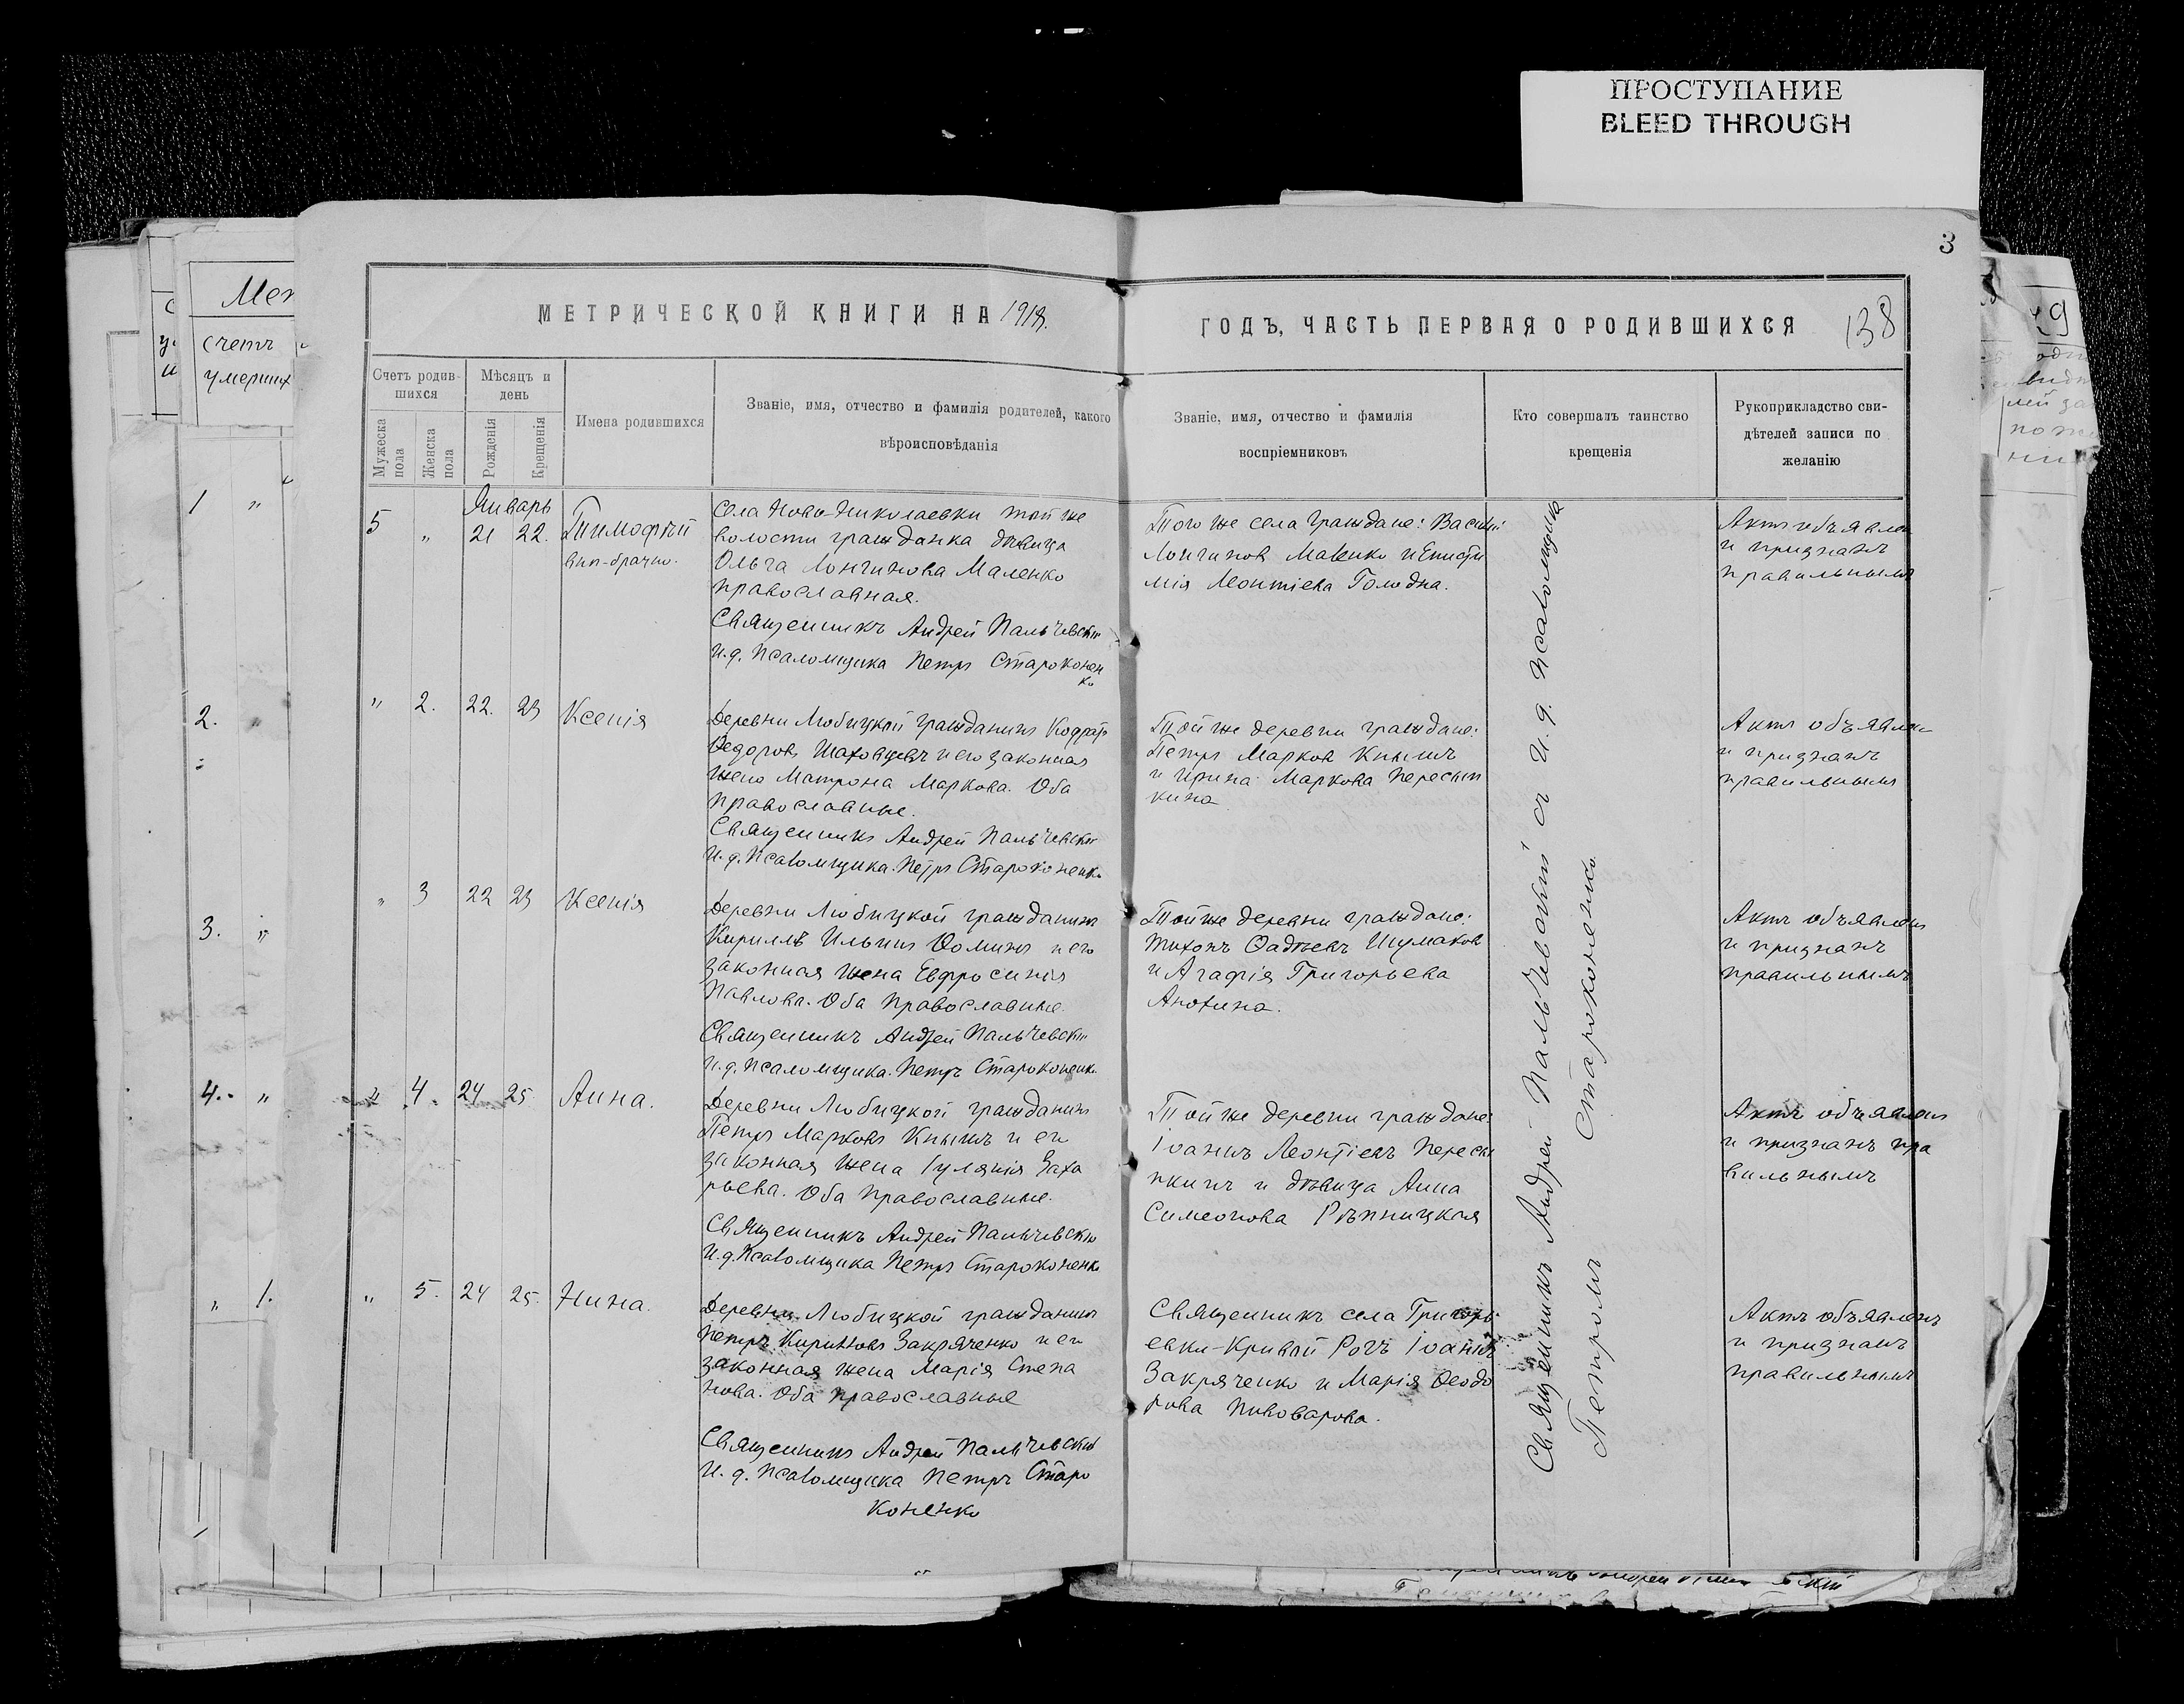 ПРОСТУПАНИЕ
BLEED THROUGH
3
МЕТРИЧЕСКОЙ КНИГИ НА 1918.
ГОДЪ, ЧАСТЬ ПЕРВАЯ О РОДИВШИХСЯ 138
Счетъ родив-
шихся
Мужеска пола
Женска пола
Мѣсяцъ и
день
Рожденія
Крещенія
Имена родившихся
Званіе, имя, отчество и фамилія родителей, какого
вѣроисповѣданія
Званіе, имя, отчество и фамилія
воспріемниковъ
Кто совершалъ таинство
крещенія
Рукоприкладство сви-
дѣтелей записи по
желанію
Январь
5 " 21 22. Тимофѣй
внѣ-брачно.
Села Ново-Николаевки той же
волости гражданка дѣвица
Ольга Лонгинова Маленко
православная.
Священникъ Андрей Пальчевскій
И.д. Псаломщика Петръ Староконен
ко
Того же села граждане: Василій
Лонгиновъ Маленко и Еписти
мія Леонтіева Голодна.
Актъ объявленъ
и признанъ
правильнымъ
" 2. 22. 23 Ксенія
Деревни Любицкой гражданинъ
Федоровъ и его законная
жена Матрона Маркова. Оба
православные.
Священникъ Андрей Пальчевскій
И.д. Псаломщика. Петръ Староконенко
Той же деревни граждане:
Петръ Марковъ Кнышъ
и Ирина Маркова Пересып
кина
Актъ объявленъ
и признанъ
правильнымъ
" 3 22 23 Ксенія
Деревни Любицкой гражданинъ
Кириллъ Ильинъ Фоминъ и его
законная жена Евфросинія
Павлова. Оба православные.
Священникъ Андрей Пальчевскій
И.д. Псаломщика. Петръ Староконенк.
Той же деревни граждане:
Тихонъ Фадѣевъ Шумаковъ
и Агафія Григорьева
Анохина.
Актъ объявленъ
и признанъ
правильнымъ
" 4. 24 25 Анна.
Деревни Любицкой гражданинъ
Петръ Марковъ Кнышъ и его
законная жена Іуліянія Заха
рьева. Оба православные.
Священникъ Андрей Пальчевскій
И.д. Псаломщика Петръ Староконенко
Той же деревни граждане:
Іоаннъ Леонтіевъ Пересы
пкинъ и дѣвица Анна
Симеонова Рѣпницкая
Актъ объявленъ
и признанъ пра
вильнымъ
" 5. 24 25. Нина.
Деревни Любицкой гражданинъ
Петръ Закряченко и его
законная жена Марія Степа
нова. Оба православные
Священникъ Андрей Пальчевскій
И.д. Псаломщика Петръ Старо
коненко
Священникъ села Григорь
евки-Кривой Рогъ Іоаннъ
Закряченко и Марія Феодо
рова Пивоварова.
Актъ объявленъ
и признанъ
правильнымъ
Священникъ Андрей Пальчевскій съ и.д. псаломщика
Петромъ Староконенко
Счетъ
умерших
1 "
2. "
3. "
4. "
" 1.